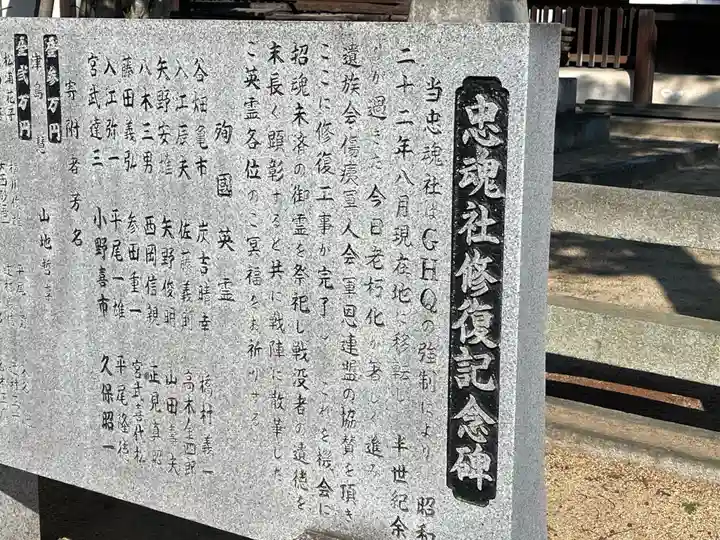 忠魂社修復記念碑
当忠魂社はGHQの強制により 昭和
二十二年八月現在地に移転し 半世紀余
りが過ぎた 今日老朽化が著しく進み
遺族会傷痍軍人会軍恩連盟の協賛を頂き
ここに修復工事が完了し これを機会に
招魂未済の御霊を祭祀し戦没者の遺徳を
末長く顕彰すると共に戦陣に散華した
ご英霊各位のご冥福をお祈りする
殉國英霊
谷畑亀市 炭吉晴幸 橋村義一
入江辰夫 佐藤義則 高木金四郎
矢野安雄 矢野俊明 山田喜夫
八木三男 西岡信親 正見真昭
藤田義弘 参田重一 宮武喜代松
入江弥一 平尾一雄 平尾隆徳
宮武達三 小野喜市 久保昭一
寄附者芳名
壱参万円
津島 山地哲幸
壱弐万円